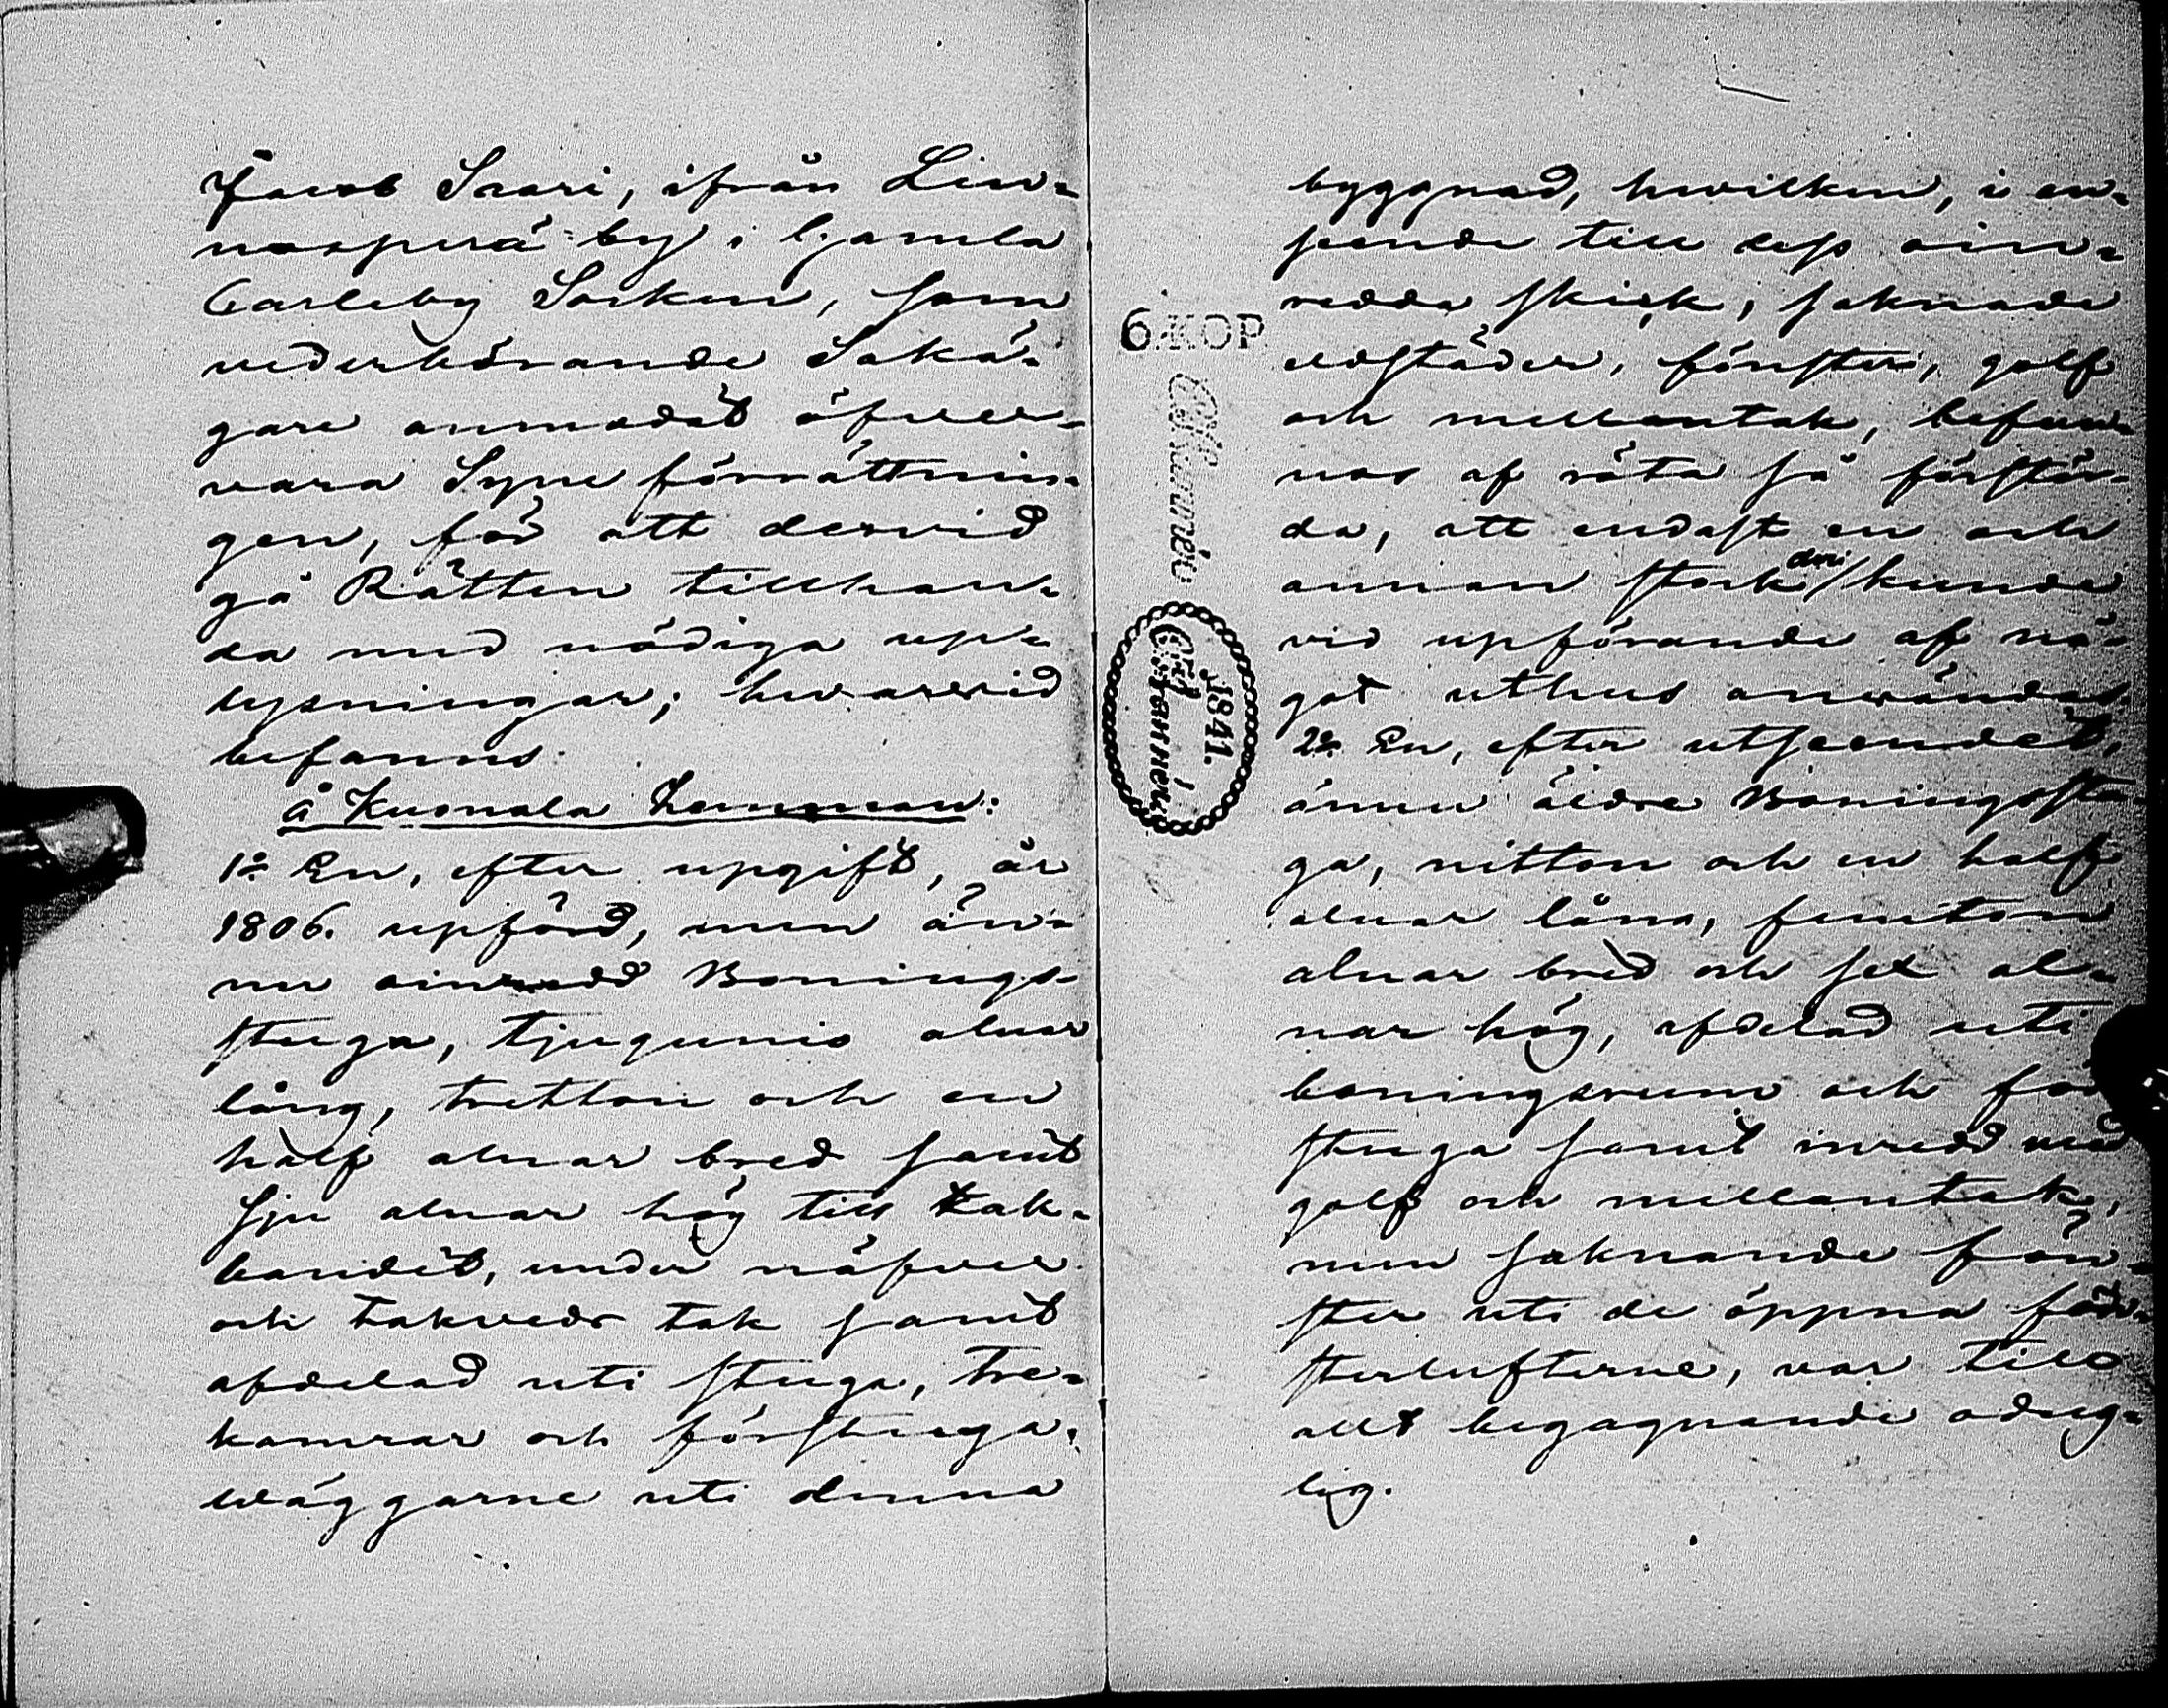 Jacob Saari, ifrån Lin-
nasperä by i Gamla
Carleby Socken, som
vederbörande Sakä-
gare anmodat öfver-
vara Syne förrättnin-
gen, för att dervid
gå Rätten tillhan-
da med nödiga up-
lysningar; hvarvid
befanns
å Kuonala hemman:
1o En, efter upgift, år
1806. upförd, men än-
nu oinredd Bonings-
stuga, tjugunio alnar
lång, tretton och en
half alnar bred samt
sju alnar hög till tak-
bandet, under näfver
och takveds tak samt
afdelad uti stuga, tre
kamrar och förstuga.
Wäggarne uti denna
byggnad, hvilken, i an-
seende till dess oin-
redda skick, saknade
eldstäder, fönster, golf
och mellantak, befun-
nos af röta så förstör-
da, att endast en och
annan stock deri kunde
vid upförande af nå-
got uthus användas.
2o En, efter utseendet,
ännu äldre Boningsstu-
ga, nitton och en half
alnar lång, femton
alnar bred och sex al-
nar hög, afdelad uti
boningsrum och för
stuga samt inredd med
golf och mellantak,
men saknande fön-
ster uti de öppna fön-
sterlufterne, var till
allt begagnande odug-
lig.
6. KOP.
1841.